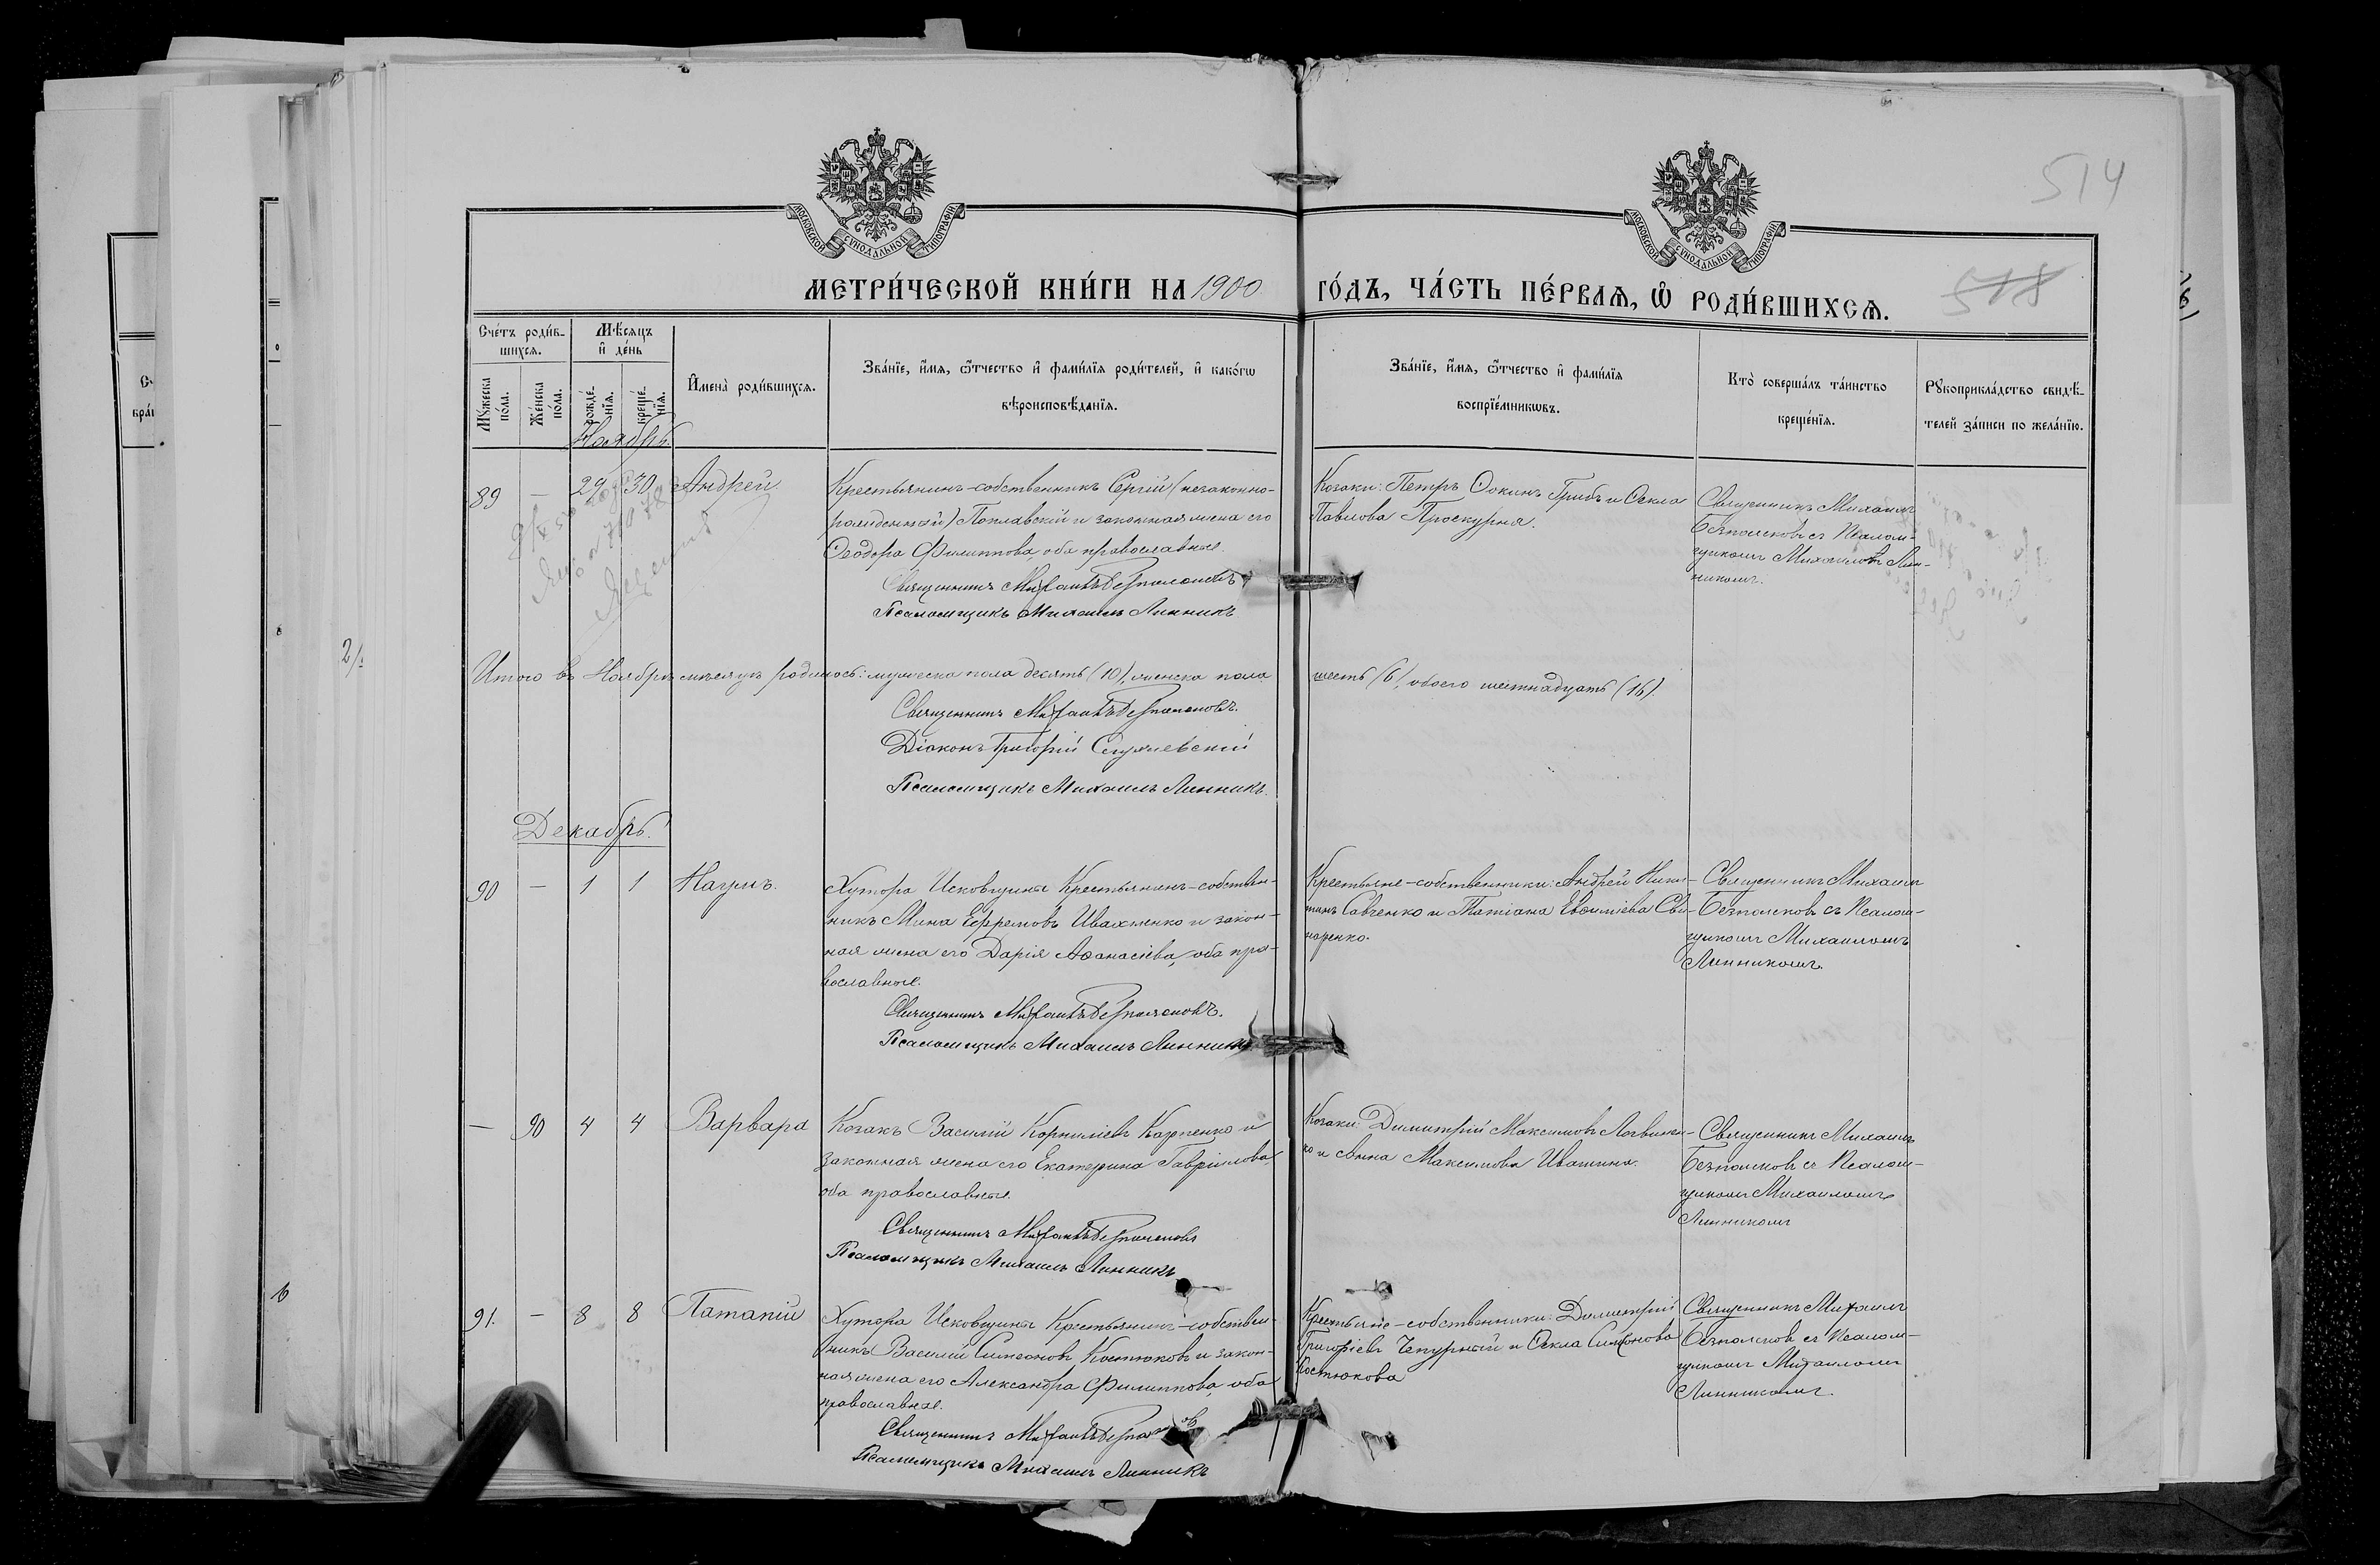 514
518
МОСКОВСКОЙ СѴНОДАЛЬНОЙ ТИПОГРАФІИ
МОСКОВСКОЙ СѴНОДАЛЬНОЙ ТИПОГРАФІИ
МЕТРИ́ЧЕСКОЙ КНИ́ГИ НА 1900 ГО́ДЪ, ЧА́СТЬ ПЕ́РВАЯ, Ѡ҆ РОДИ́ВШИХСЯ.
Сче́тъ роди́в-
шихся.
Мѣ́сяцъ
и҆ де́нь
Мꙋ́жеска по́ла.
Же́нска по́ла.
рожде́-
нїя.
креще́-
нїя.
И҆мена̀ роди́вшихся.
Зва́нїе, и҆́мя, ѻ҆́тчество и҆ фами́лїя роди́телей, и҆ како́гѡ
вѣроисповѣ́данїя.
Зва́нїе, и҆́мя, ѻ҆́тчество и҆ фами́лїя
воспрїе́мникѡвъ.
Кто̀ соверша́лъ та́инство
креще́нїя.
Рꙋкоприкла́дство свидѣ́-
телей за́писи по жела́нїю.
Ноябрь.
89 — 29 30 Андрей.
Крестьянинъ-собственникъ Сергій (незаконно-
рожденный) Поплавскій и законная жена его
Ѳеодора Филиппова, оба православные.
Священникъ Михаилъ Безпалековъ
Псаломщикъ Михаилъ Линникъ
Козаки: Петръ Ѳокинъ Грибъ и Ѳекла
Павлова Проскурня.
Священникъ Михаилъ
Безпалековъ съ Псалом-
щикомъ Михаиломъ Лин-
никомъ.
Итого въ Ноябрѣ мѣсяцѣ родилось: мужеска пола десять (10), женска пола шесть (6), обоего шестнадцать (16).
Священникъ Михаилъ Безпалековъ.
Діаконъ Григорій
Псаломщикъ Михаилъ Линникъ.
Декабрь.
90 — 1 1 Наумъ.
Хутора Исковщины Крестьянинъ-собствен-
никъ Мина Ефремовъ Ивахненко и закон-
ная жена его Дарія Аѳанасіева, оба пра-
вославные.
Священникъ Михаилъ Безпалековъ.
Псаломщикъ Михаилъ Линникъ
Крестьяне-собственники: Андрей Ники-
тинъ Савченко и Татіана Евѳиміева Сви-
наренко.
Священникъ Михаилъ
Безпалековъ съ Псалом-
щикомъ Михаиломъ
Линникомъ.
— 90 4 4 Варвара
Козакъ Василій Корниліевъ Карпенко и
законная жена его Екатерина Гавріилова,
оба православные.
Священникъ Михаилъ Безпалековъ
Псаломщикъ Михаилъ Линникъ
Козаки: Димитрій Максимовъ Логвинен-
ко и Анна Максимова Ивашина.
Священникъ Михаилъ
Безпалековъ съ Псалом-
щикомъ Михаиломъ
Линникомъ
91. — 8 8 Патапій
Хутора Исковщины Крестьянинъ-собствен-
никъ Василій Симеоновъ Костюковъ и закон-
ная жена его Александра Филиппова, оба
православные.
Священникъ Михаилъ Безпалековъ
Псаломщикъ Михаилъ Линникъ
Крестьяне-собственники: Димитрій
Григоріевъ Чепурный и Ѳекла Симеонова
Костюкова
Священникъ Михаилъ
Безпалековъ съ Псалом-
щикомъ Михаиломъ
Линникомъ.